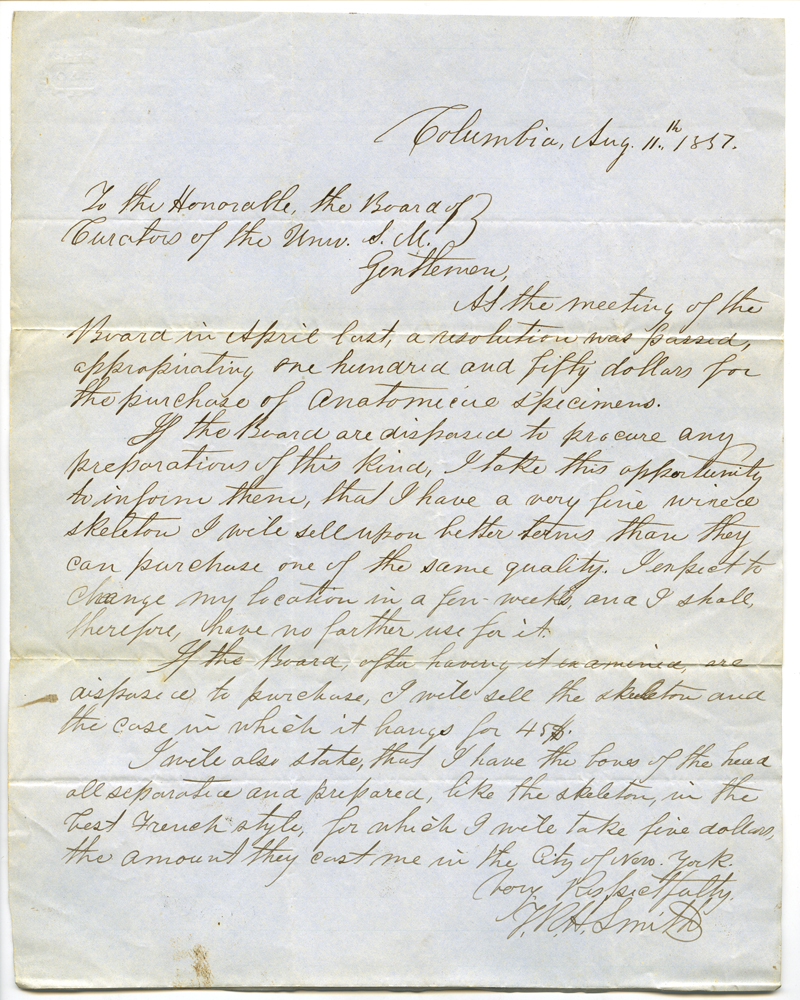 Columbia, Aug. 11.th 1857.
To the Honorable, the Board of
Curators of the Univ. S. M.
Gentlemen,
At the meeting of the
Board in April last, a resolution was passed,
appropriating one hundred and fifty dollars for
the purchase of anatomical specimens.
If the Board are disposed to procure any
preparations of this kind, I take this opportunity
to inform them, that I have a very fine wired
skeleton I will sell upon better terms than they
can purchase one of the same quality. I expect to
change my location in a few weeks, and I shall,
therefore, have no farther use for it.
If the Board, after having it examined, are
disposed to purchase, I will sell the skeleton and
the case in which it hangs for 45$.
I will also state, that I have the bones of the head
all separated and prepared, like the skeleton, in the
best French style, for which I will take five dollars,
the amount they cost me in the City of New York.
Very Respectfully.
Smith